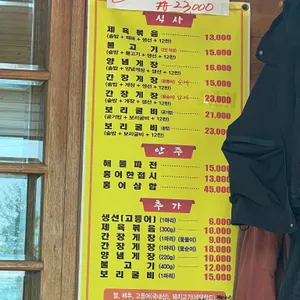 #23000
식 사
제 육 볶 음 13,000
(솥밥 + 제육 + 생선 + 12찬)
불 고 기 15,000
(솥밥 + 불고기 + 생선 + 12찬)
양 념 게 장 16,000
(솥밥 + 양념게장 + 생선 + 12찬)
간 장 게 장 15,000
(솥밥 + 간장게장 + 생선 + 12찬)
간 장 게 장 23,000
(솥밥 + 간장게장 + 생선 + 12찬)
보 리 굴 비 21,000
(공기밥 + 보리굴비 + 12찬)
보 리 굴 비 23,000
(솥밥 + 보리굴비 + 12찬)
안 주
해 물 파 전 15,000
홍 어 한 접 시 13,000
홍 어 삼 합 45,000
추 가
생선(고등어) (1마리) 6,000
제 육 볶 음 (300g) 10,000
간 장 게 장 (1마리) 9,000
간 장 게 장 (1마리) 18,000
양 념 게 장 (220g) 10,000
불 고 기 (400g) 12,000
보 리 굴 비 (1마리) 15,000
쌀, 배추, 고등어(국내산),